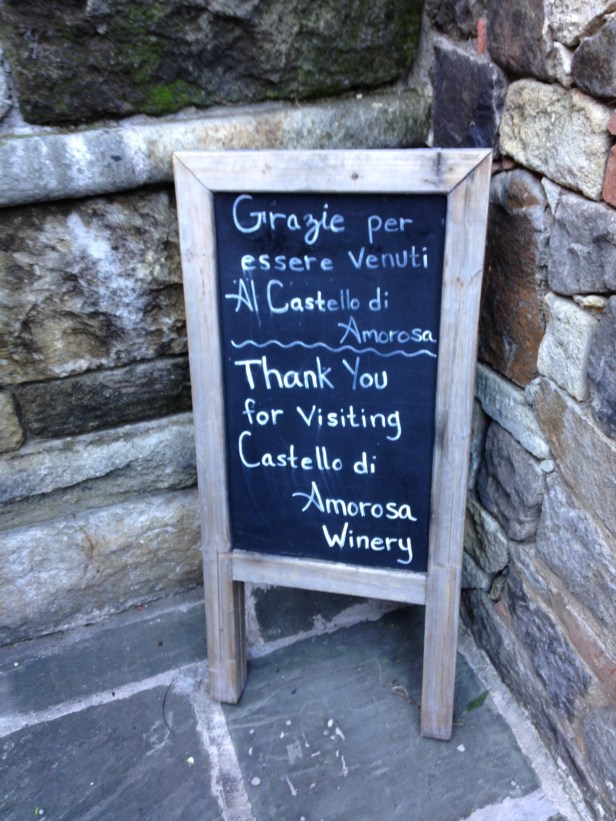 Grazie per
essere Venuti
Al Castello di
Amorosa
Thank You
for Visiting
Castello di
Amorosa
Winery